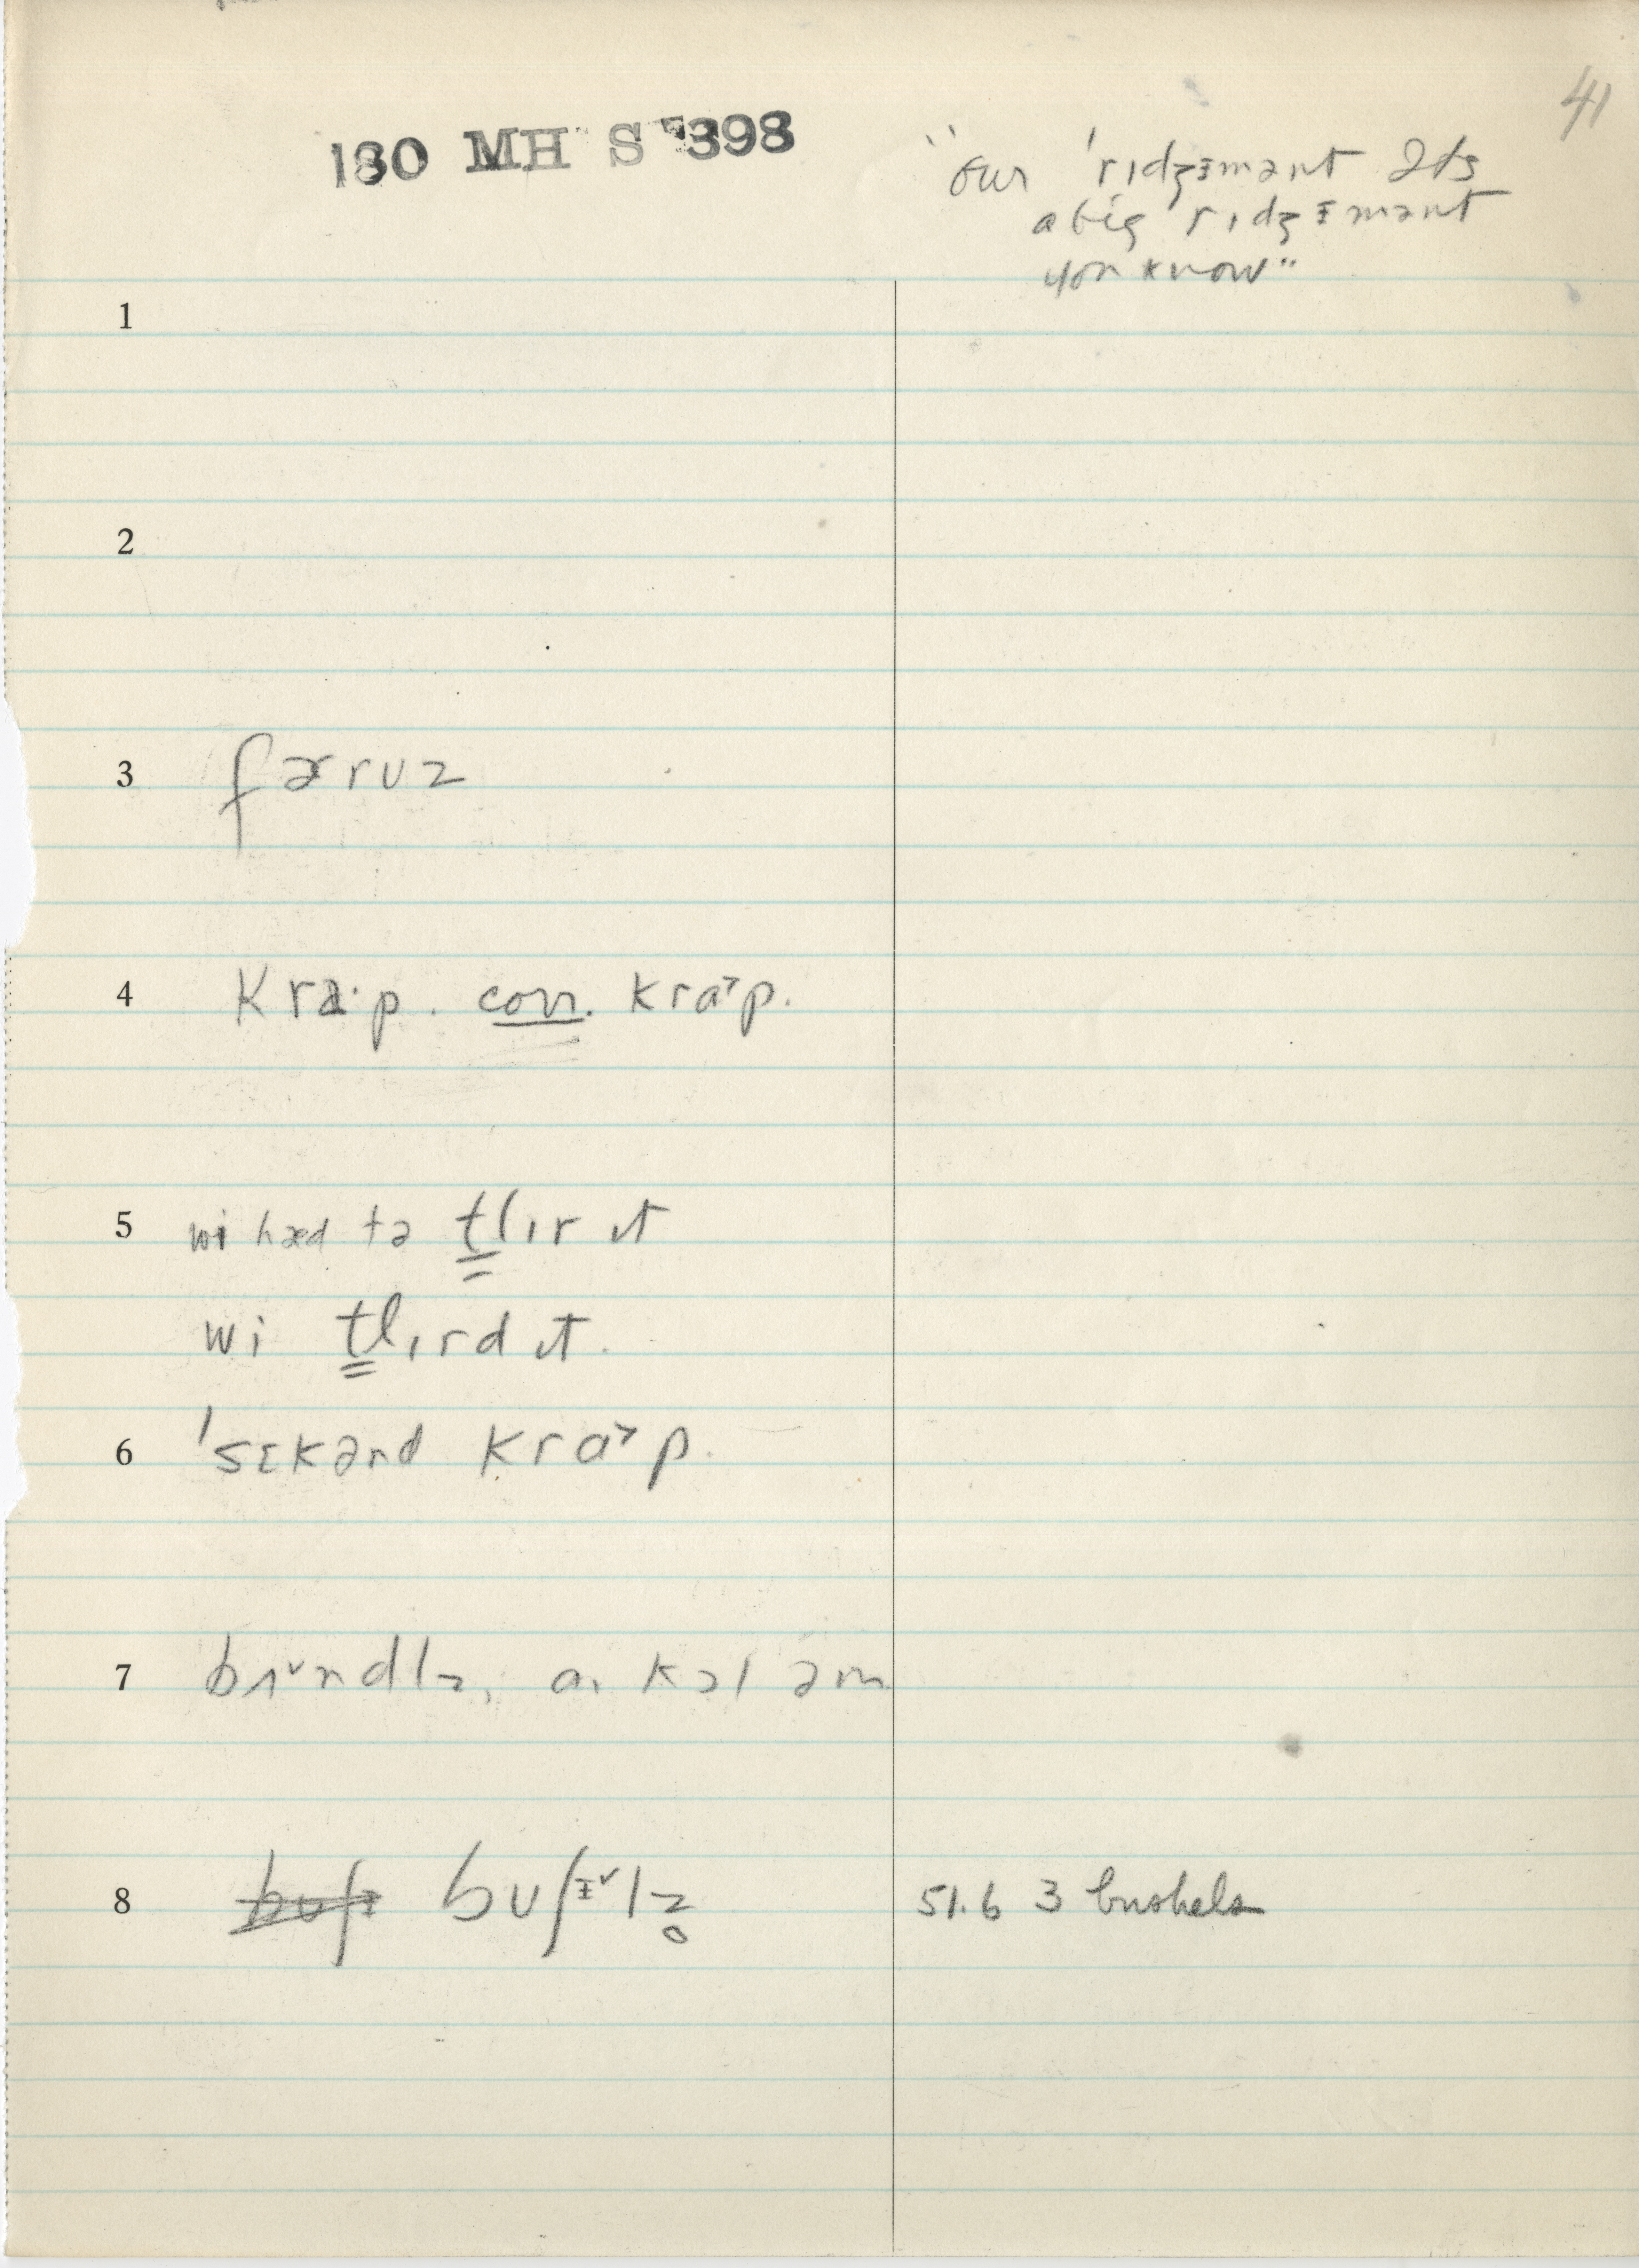 41
180 MH S 398
"our 'rɪdʒɪmənt ɪts
a big 'rɪdʒɪmənt
you know"
1
2
3 færʊz
4 kra·p. corr. kra˃p.
5 wi hæd tə tlɪr ɪt
wi tlɪrd ɪt.
6 'sɛkənd kra˃p.
7 bʌ˅ndlz, aɪ kɔl əm
8 bʊʃɪ˅lz̥ 51.6 3 bushels